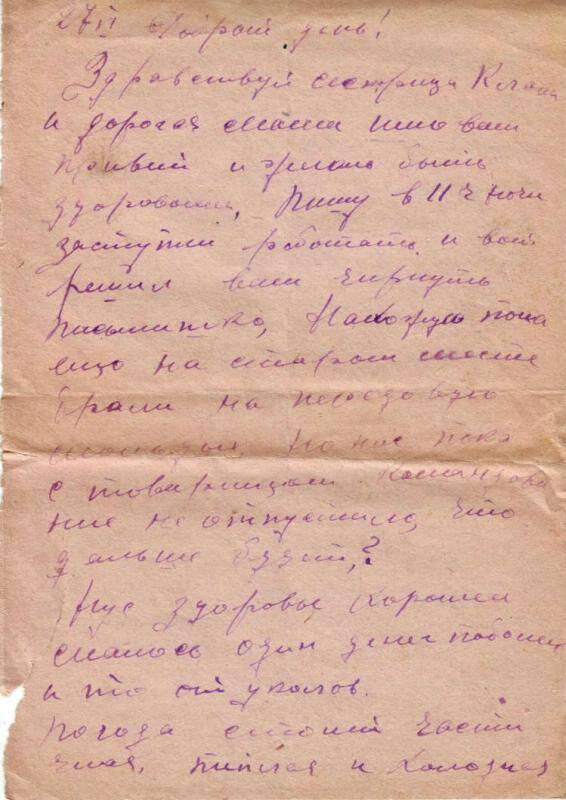 27 II Добрый день!
Здравствуй сестрица Клава
и дорогая мама шлю вам
привет и желаю быть
здоровыми, Пишу в 11 ч ночи
заступил работать и вот
решил вам чиркнуть
письмишко, Нахожусь пока
ещо на старом месте
брали на передовую
но нас пока
с товарищем Командова
ние не отпустило, что
дальше будит,?
здоровье хорошее
один день
и то от уколов.
погода стоит части
чная, типлая и холодная